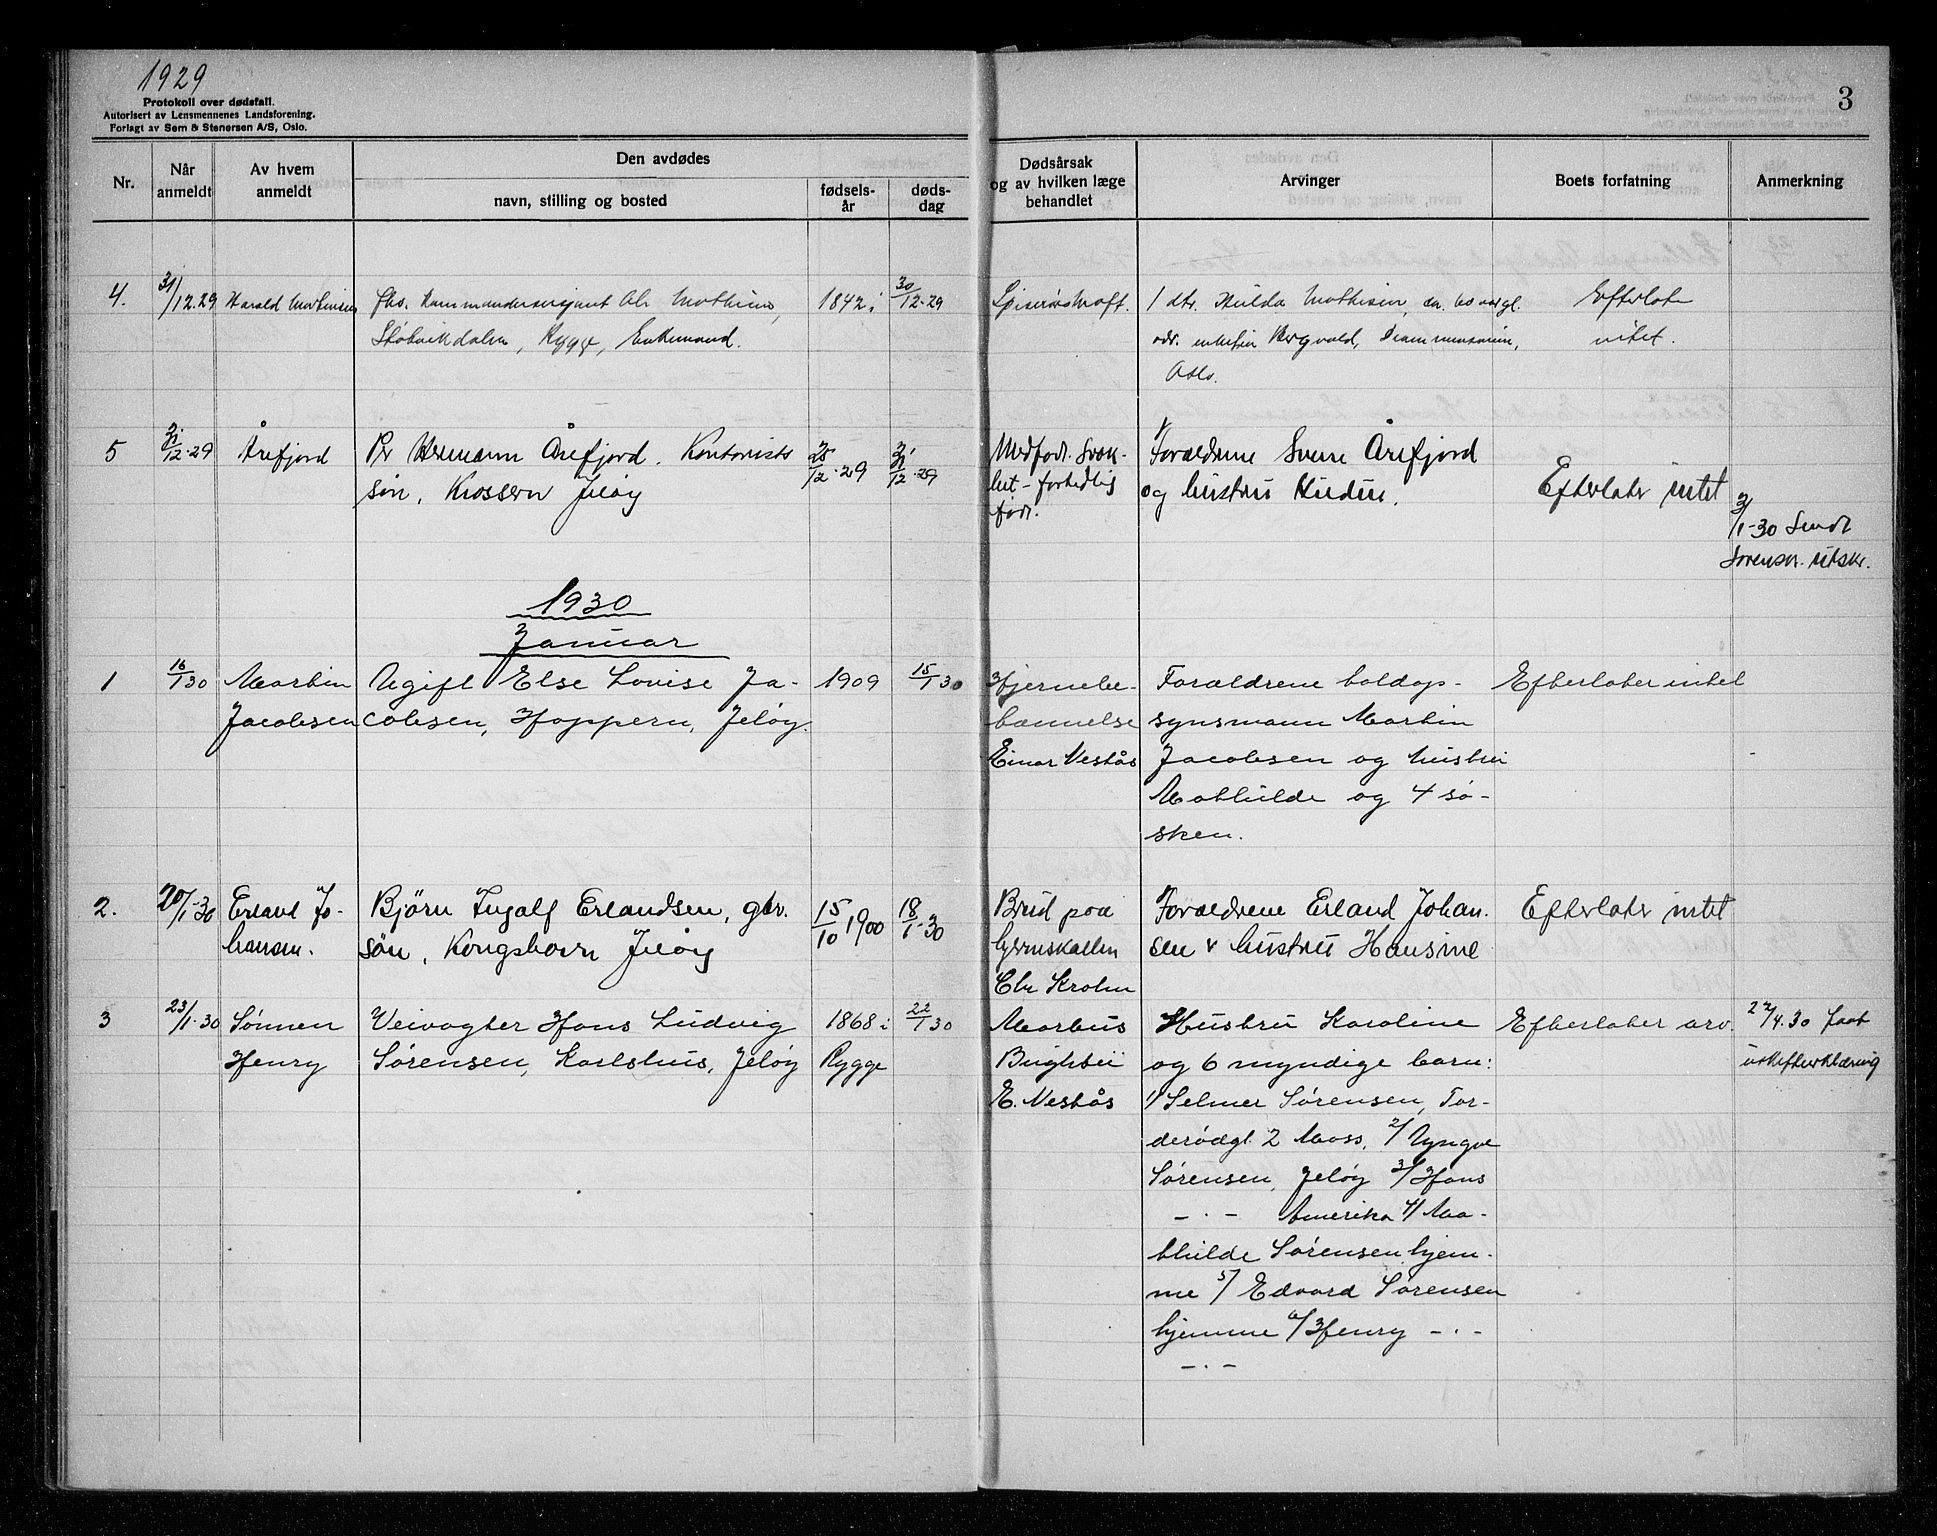 1929
Protokoll over dødsfall.
Autorisert av Lensmennenes Landsforening.
Forlagt av Sem & Stenersen A/S, Oslo.
3
Nr.
Når anmeldt
Av hvem anmeldt
Den avdødes
navn, stilling og bosted
fødsels-år
døds-dag
Dødsårsak og av hvilken læge behandlet
Arvinger
Boets forfatning
Anmerkning
4.
31/12.29
Harald
fhv.
Rygge, Enkemand.
1842 i
30/12-29
1 dtr. Hulda Mathisen, ca. 60 aar gl.
adr. Bergvold,
Oslo.
Efterlater
intet.
5
31/12-29
Årefjord
Per Hermann Årefjord. Kontorists
søn, Krossern Jeløy
25/12-29
31/12-29
Medfødt Svak-
het - fortidlig
født.
Forældrene Sverre Årefjord
og hustru
Efterlater intet
3/1-30 Sendt
Sorenskr. utskr.
1930
Januar
1
16/1 30
Martin
Jacobsen
Ugift Else Lovise Ja-
cobsen, Hoppern, Jeløy.
1909
15/1 30
Hjernebe-
tennelse
Einar Nestås
Forældrene toldop-
synsmann Martin
Jacobsen og hustru
Mathilde og 4 sø-
sken.
Efterlater intet
2.
20/1-30
Erland Jo-
hansen.
Björn Ingolf Erlandsen, gbr.
søn, Kongshavn Jeløy
15/10 1900
18/1-30
Brud paa
hjerneskallen
Chr Krohn
Forældrene Erland Johan.
sen & hustru Hansine
Efterlater intet
3
23/1-30
Sønnen
Henry
Veivogter Hans Ludvig
Sørensen, Karlshus, Jeløy
1868 i
Rygge
22/1 30
Morbus
Brightii
E. Nestås
Hustru Karoline
og 6 myndige barn:
1/ Selmer Sørensen, Tor-
derødgt 2 Moss, 2/ Yngve
Sørensen, Jeløy 3/ Hans
— . — Amerika 4/ Ma-
thilde Sørensen hjem-
me 5/ Edvard Sørensen
hjemme 6/ Henry — . —
— . —
Efterlater arv
22/4.30 faat
uskifteerklæring